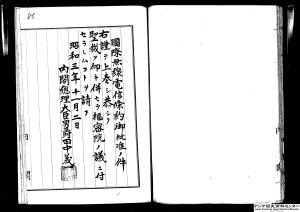 國際無線電信條約御批准ノ件
右謹テ上奏シ恭シク
聖裁ヲ仰キ併セテ樞密院ノ議ニ付
セラレムコトヲ請フ
昭和三年十月二日
内閣總理大臣男爵田中義一